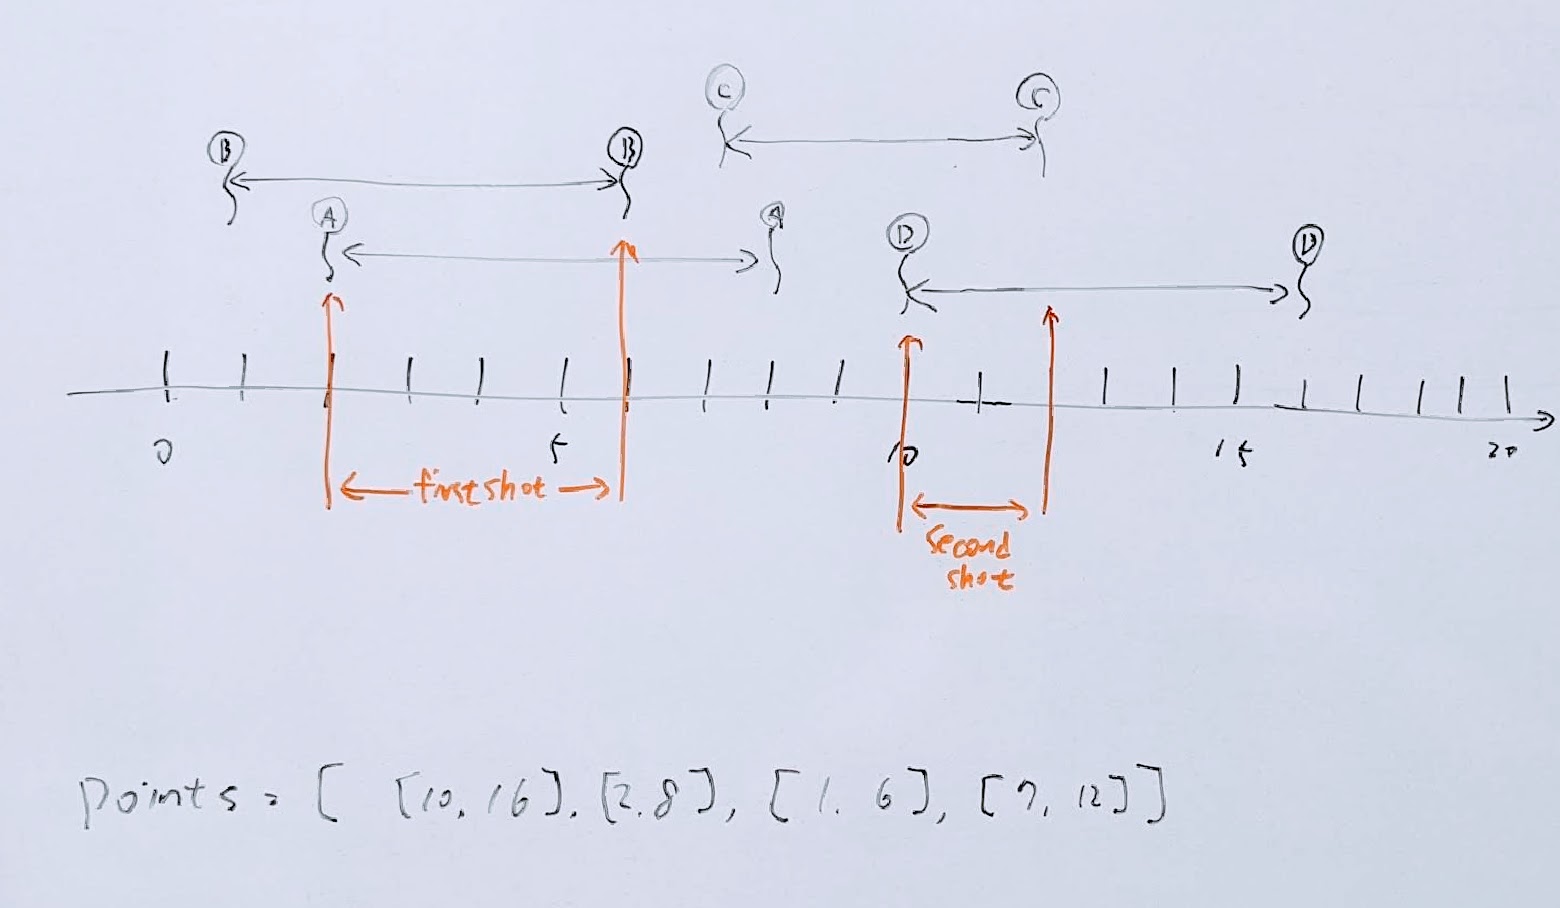 C C
B B
A A
D D
0 5 10 15 20
first shot
second
shot
points = [ [10, 16], [2, 8], [1, 6], [7, 12] ]